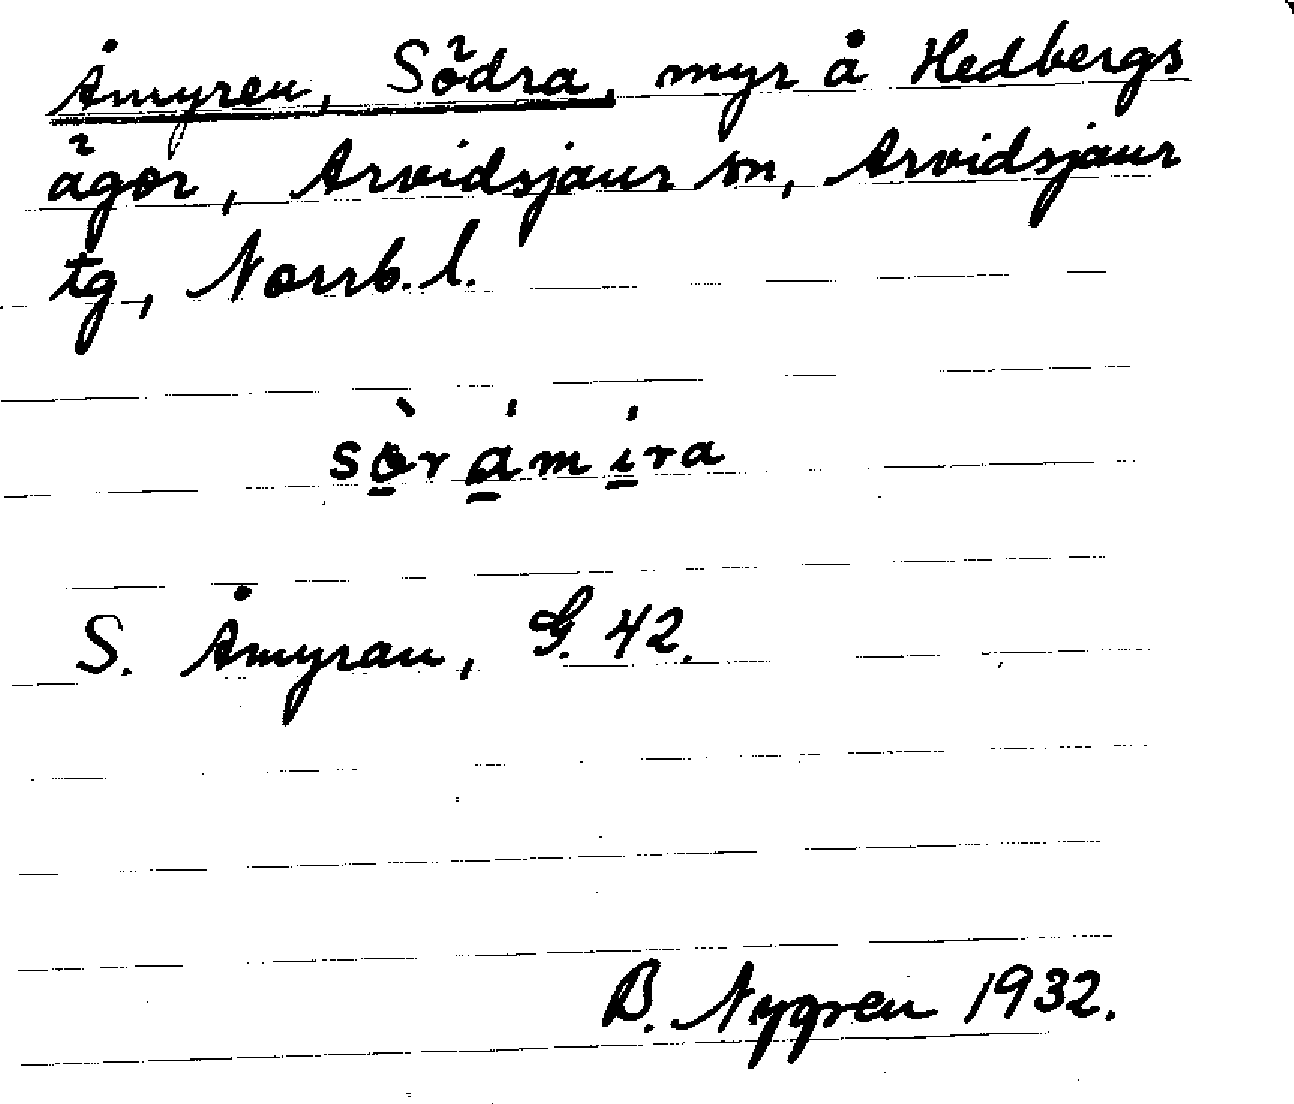 Åmyren, Södra, myr å Hedbergs
ägor, Arvidsjaur sn, Arvidsjaur
tg, Norrb. l.
sò̱rá̱mí̱ra
S. Åmyran, G. 42.
B. Nygren 1932.